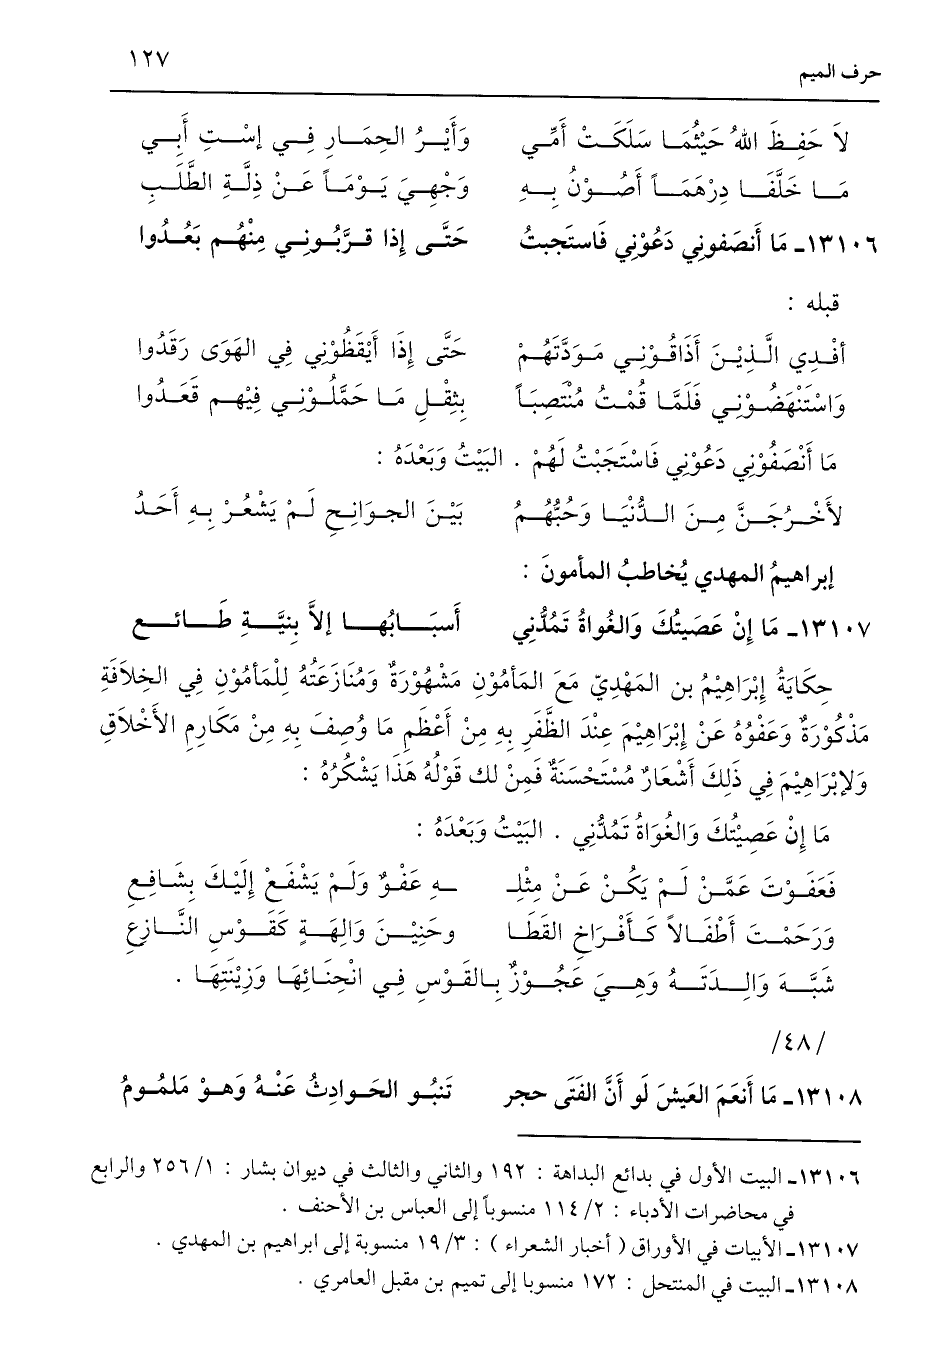 حرف الميم ١٢٧
لاَ حَفِـظَ اللهُ حَيْثُمَـا سَلَكَـتْ أُمِّـي وَأَيْـرُ الحِمَـارِ فِـي إسْـتِ أَبِـي
مَـا خَلَّفَـا دِرْهَمَـاً أَصُـوْنُ بِـهِ وَجْهِـيَ يَـوْمَـاً عَـنْ ذِلَّـةِ الطَّلَـبِ
١٣١٠٦ـ مَا أَنصَفوني دَعُوْني فَاستَجبتُ حَتَّـى إذا قَـرَّبُـونـي مِنْهُـم بَعُـدُوا
قبله :
أفْـدِي الَّـذِيْـنَ أَذَاقُـوْنِـي مَـوَدَّتَهُـمْ حَتَّى إِذَا أَيْقَظُوْنِي فِي الهَوَى رَقَدُوا
وَاسْتَنْهَضُـوْنِـي فَلَمَّا قُمْـتُ مُنْتَصِبَـاً بِثِقْـلِ مَـا حَمَّلُـوْنِـي فِيْهِـم قَعَـدُوا
مَا أَنْصَفُوْنِي دَعُوْنِي فَاسْتَجَبْتُ لَهُمْ . البَيْتُ وَبَعْدَهُ :
لأَخْـرُجَـنَّ مِـنَ الـدُّنْيَـا وَحُبُّهُـمُ بَيْـنَ الجـوَانِـحِ لَـمْ يَشْعُـرْ بِـهِ أَحَـدُ
إبراهيمُ المهدي يُخاطبُ المأمونَ :
١٣١٠٧ـ مَا إنْ عَصَيتُكَ وَالغُواةُ تَمُدُّنِي أَسبَـابُهـا إلاَّ بِنيَّـةِ طَـائـعِ
حِكَايَةُ إِبْرَاهِيْمُ بن المَهْدِيّ مَعَ المَأمُوْنِ مَشْهُورَةٌ وَمُنَازَعَتُهُ لِلْمَأمُوْنِ فِي الخِلاَفَةِ
مَذْكُوْرَةٌ وَعَفْوُهُ عَنْ إبْرَاهِيْمَ عِنْدَ الظَّفَرِ بِهِ مِنْ أَعْظَمِ مَا وُصِفَ بِهِ مِنْ مَكَارِمِ الأَخْلاَقِ
وَلإبْرَاهِيْمَ فِي ذَلِكَ أَشْعَارٌ مُسْتَحْسَنَةٌ فَمِنْ لك قَوْلُهُ هَذَا يَشْكُرُهُ :
مَا إنْ عَصِيْتُكَ وَالغُوَاةُ تَمُدُّنِي . البَيْتُ وَبَعْدَهُ :
فَعَفَـوْتَ عَمَّـنْ لَـمْ يَكُـنْ عَـنْ مِثْلِـ ـهِ عَفْـوٌ وَلَـمْ يَشْفَـعْ إِلَيْـكَ بِشَـافِـعِ
وَرَحَمْـتَ أَطْفَـالاً كَـأَفْـرَاخِ القَطَـا وحَنِيْـنَ وَالِهَـةٍ كَقَـوْسِ النَّـازِعِ
شَبَّـهَ وَالِـدَتَـهُ وَهِـيَ عَجُـوْزٌ بِـالقَـوْسِ فِـي انْحِنَـائِهَـا وَزِيْنَتِهَـا .
/٤٨/
١٣١٠٨ـ مَا أَنعَمَ العَيشَ لَو أَنَّ الفَتَى حجر تَنبُـو الحَـوادِثُ عَنْـهُ وَهـوْ مَلمُـومُ
١٣١٠٦ـ البيت الأول في بدائع البداهة : ١٩٢ والثاني والثالث في ديوان بشار : ١/ ٢٥٦ والرابع
في محاضرات الأدباء : ٢/ ١١٤ منسوباً إلى العباس بن الأحنف .
١٣١٠٧ـ الأبيات في الأوراق ( أخبار الشعراء ) : ٣/ ١٩ منسوبة إلى ابراهيم بن المهدي .
١٣١٠٨ـ البيت في المنتحل : ١٧٢ منسوبا إلى تميم بن مقبل العامري .